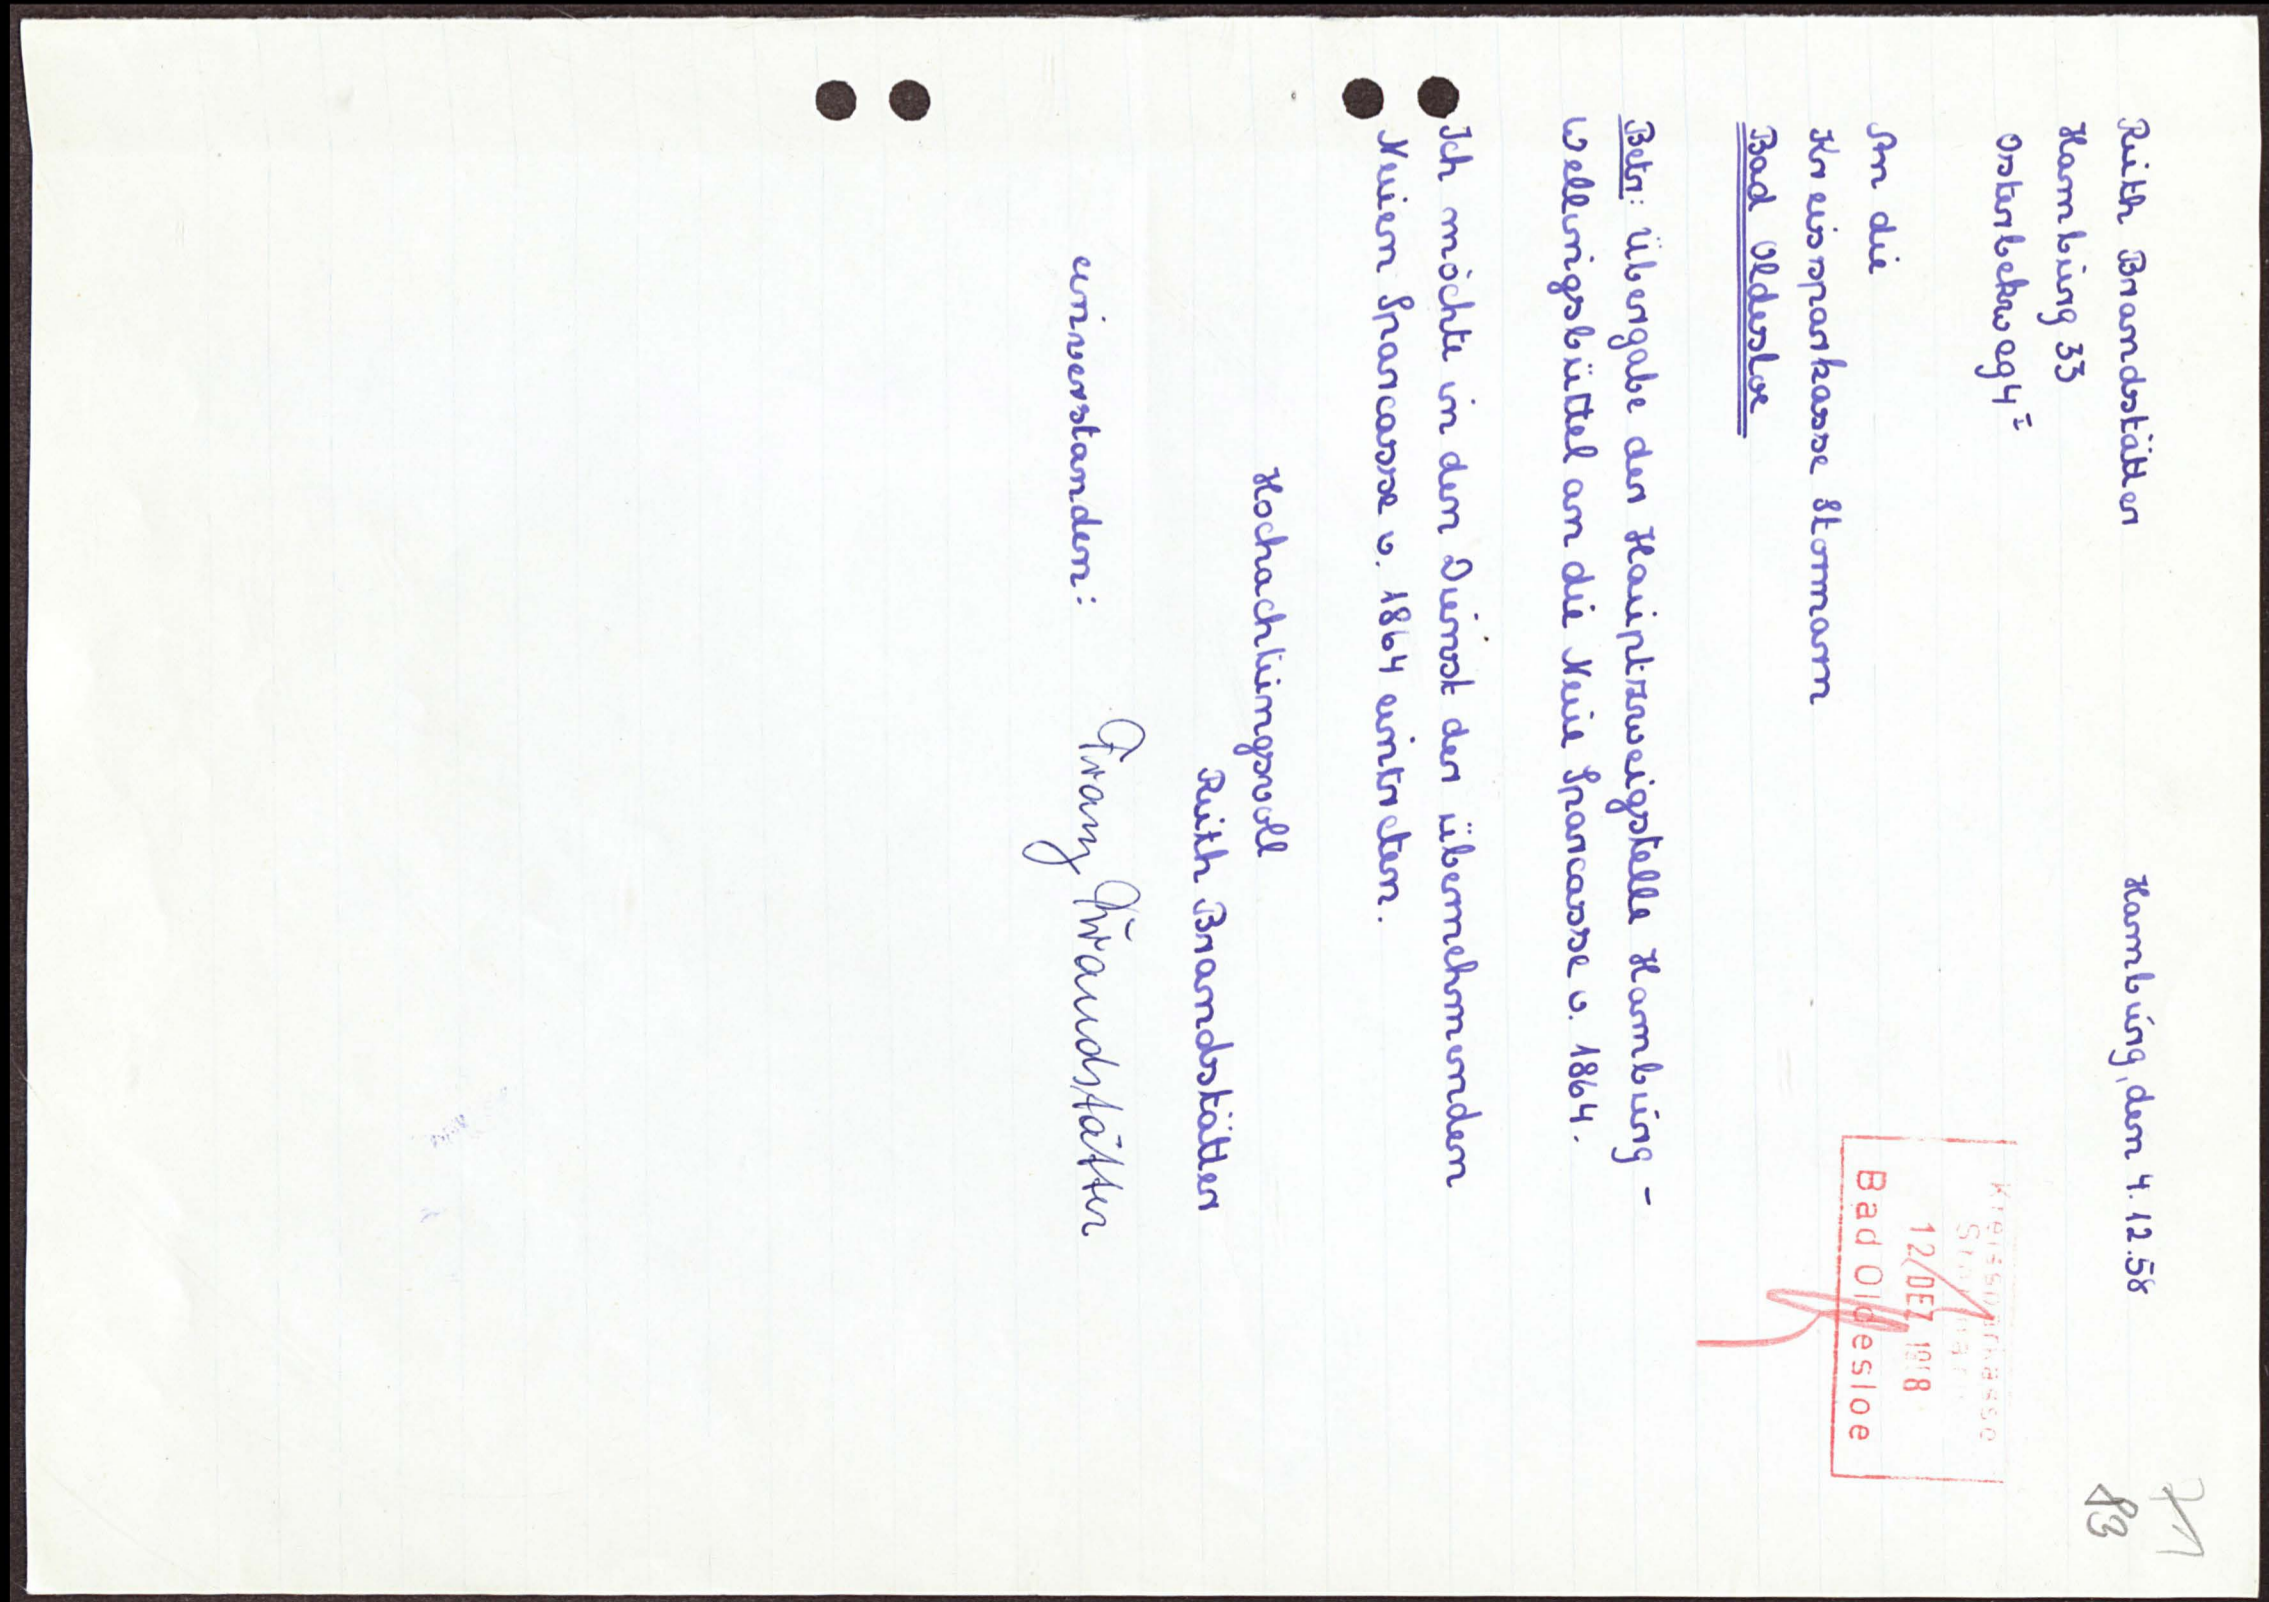 71
83
Ruth Brandstätter
Hamburg, den 4.12.58
Hamburg 33
Osterbekweg 4 I
Kreissparkasse
Stormarn
12. DEZ. 1958
Bad Oldesloe
An die
Kreissparkasse Stormarn
Bad Oldesloe
Betr: Übergabe der Hauptzweigstelle Hamburg-
Wellingsbüttel an die Neue Sparcasse v. 1864.
Ich möchte in den Dienst der übernehmenden
Neuen Sparcasse v. 1864 eintreten.
Hochachtungsvoll
Ruth Brandstätter
einverstanden: Franz Brandstätter